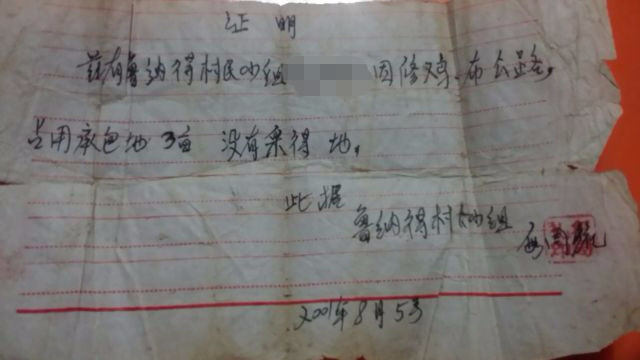 证明
兹有鲁纳得村民小组 因修鸡布公路,
占用承包地3亩 没有来得地。
此据
鲁纳得村小组
2001年8月5号